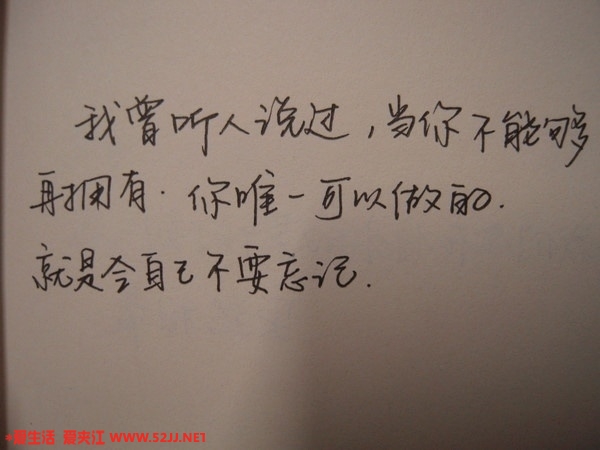 我曾听人说过，当你不能够
再拥有．你唯一可以做的．
就是令自己不要忘记．
爱生活 爱夹江 WWW.52JJ.NET